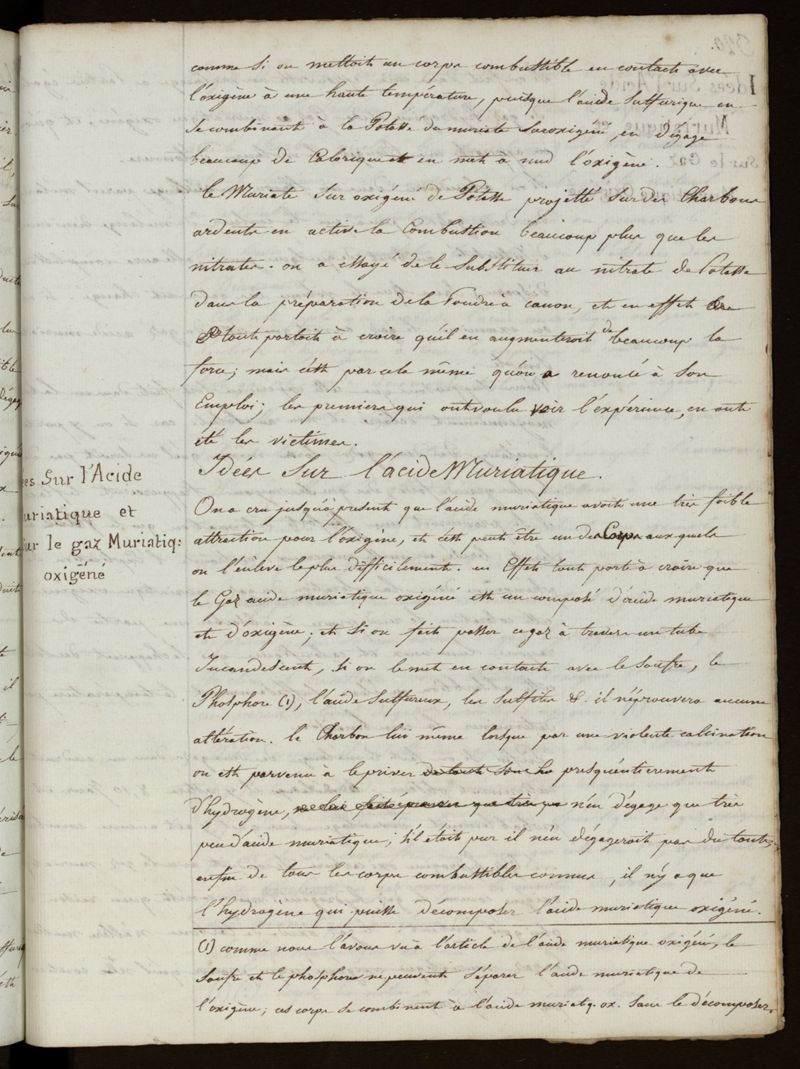 comme si on mettoit un corps combustible en contact avec
l'oxigène à une haute température, puisque l'acide sulfurique en
se combinant à la Potasse du muriate suroxigéné, en dégage
beaucoup de Calorique et en met à nud l'oxigène.
le Muriate sur oxigéné de Potasse projetté sur des Charbons
ardents en active la Combustion beaucoup plus que les
nitrates. on a essayé de le substituer au nitrate de Potasse
dans la préparation de la Poudre à canon, et en effet
tout portoit à croire qu'il en augmenteroit de beaucoup la
force; mais c'est par cela même qu'on a renoncé à son
Emploi; les premiers qui ont voulu voir l'expérience, en ont
été les victimes.
Idées sur l'acide Muriatique.
es Sur l'Acide
uriatique et
ur le gaz Muriatiq:
oxigéné
On a cru jusqu'à présent que l'acide muriatique avoit une très foible
attraction pour l'oxigène, et c'est peut être un des Corps auxquels
on l'enlève le plus difficilement. en Effet tout porte à croire que
le Gaz acide muriatique oxigéné est un composé d'acide muriatique
et d'oxigène; et si on fait passer ce gaz à travers un tube
Incandescent, si on le met en contact avec le Soufre, le
Phosphore (1), l'acide sulfureux, les sulfites &. il n'éprouvera aucune
altération. le Charbon lui même lorsque par une violente calcination
on est parvenu à le priver de tout son hy presqu'entierement
d'hydrogène, n'en dégage que très
peu d'acide muriatique; s'il étoit pur il n'en dégageroit pas du tout;
enfin de tous les corps combustibles connus, il n'y a que
l'hydrogène qui puisse décomposer l'acide muriatique oxigéné.
(1) comme nous l'avons vu à l'article de l'acide muriatique oxigéné, le
soufre et le phosphore ne peuvent séparer l'acide muriatique de
l'oxigène; ces corps se combinent à l'acide muriatiq. ox. sans le décomposer.